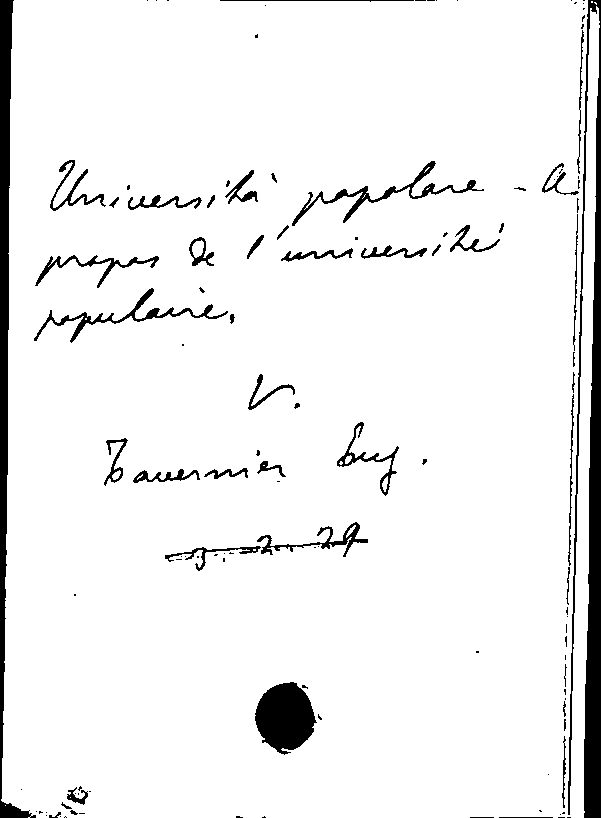 Università popolare - A
propos de l'université
populaire.
V.
Tavernier Eug.
3. 2. 29